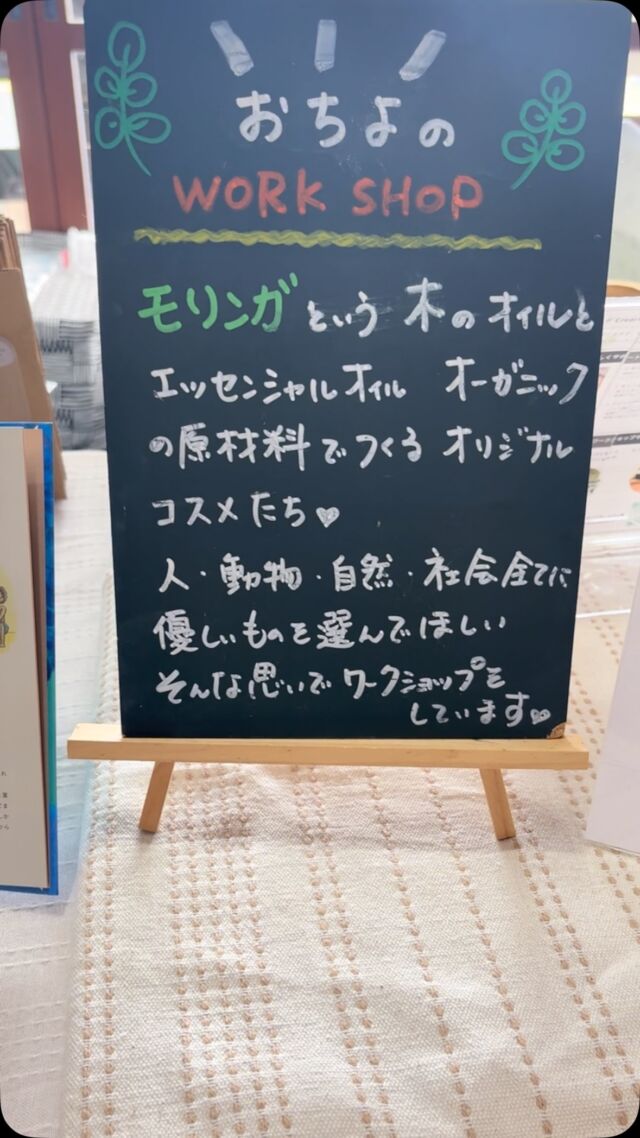 おちよの
WORK SHOP
モリンガという木のオイルと
エッセンシャルオイル オーガニック
の原材料でつくるオリジナル
コスメたち♥
人・動物・自然・社会全てに
優しいものを選んでほしい
そんな思いでワークショップを
しています♥